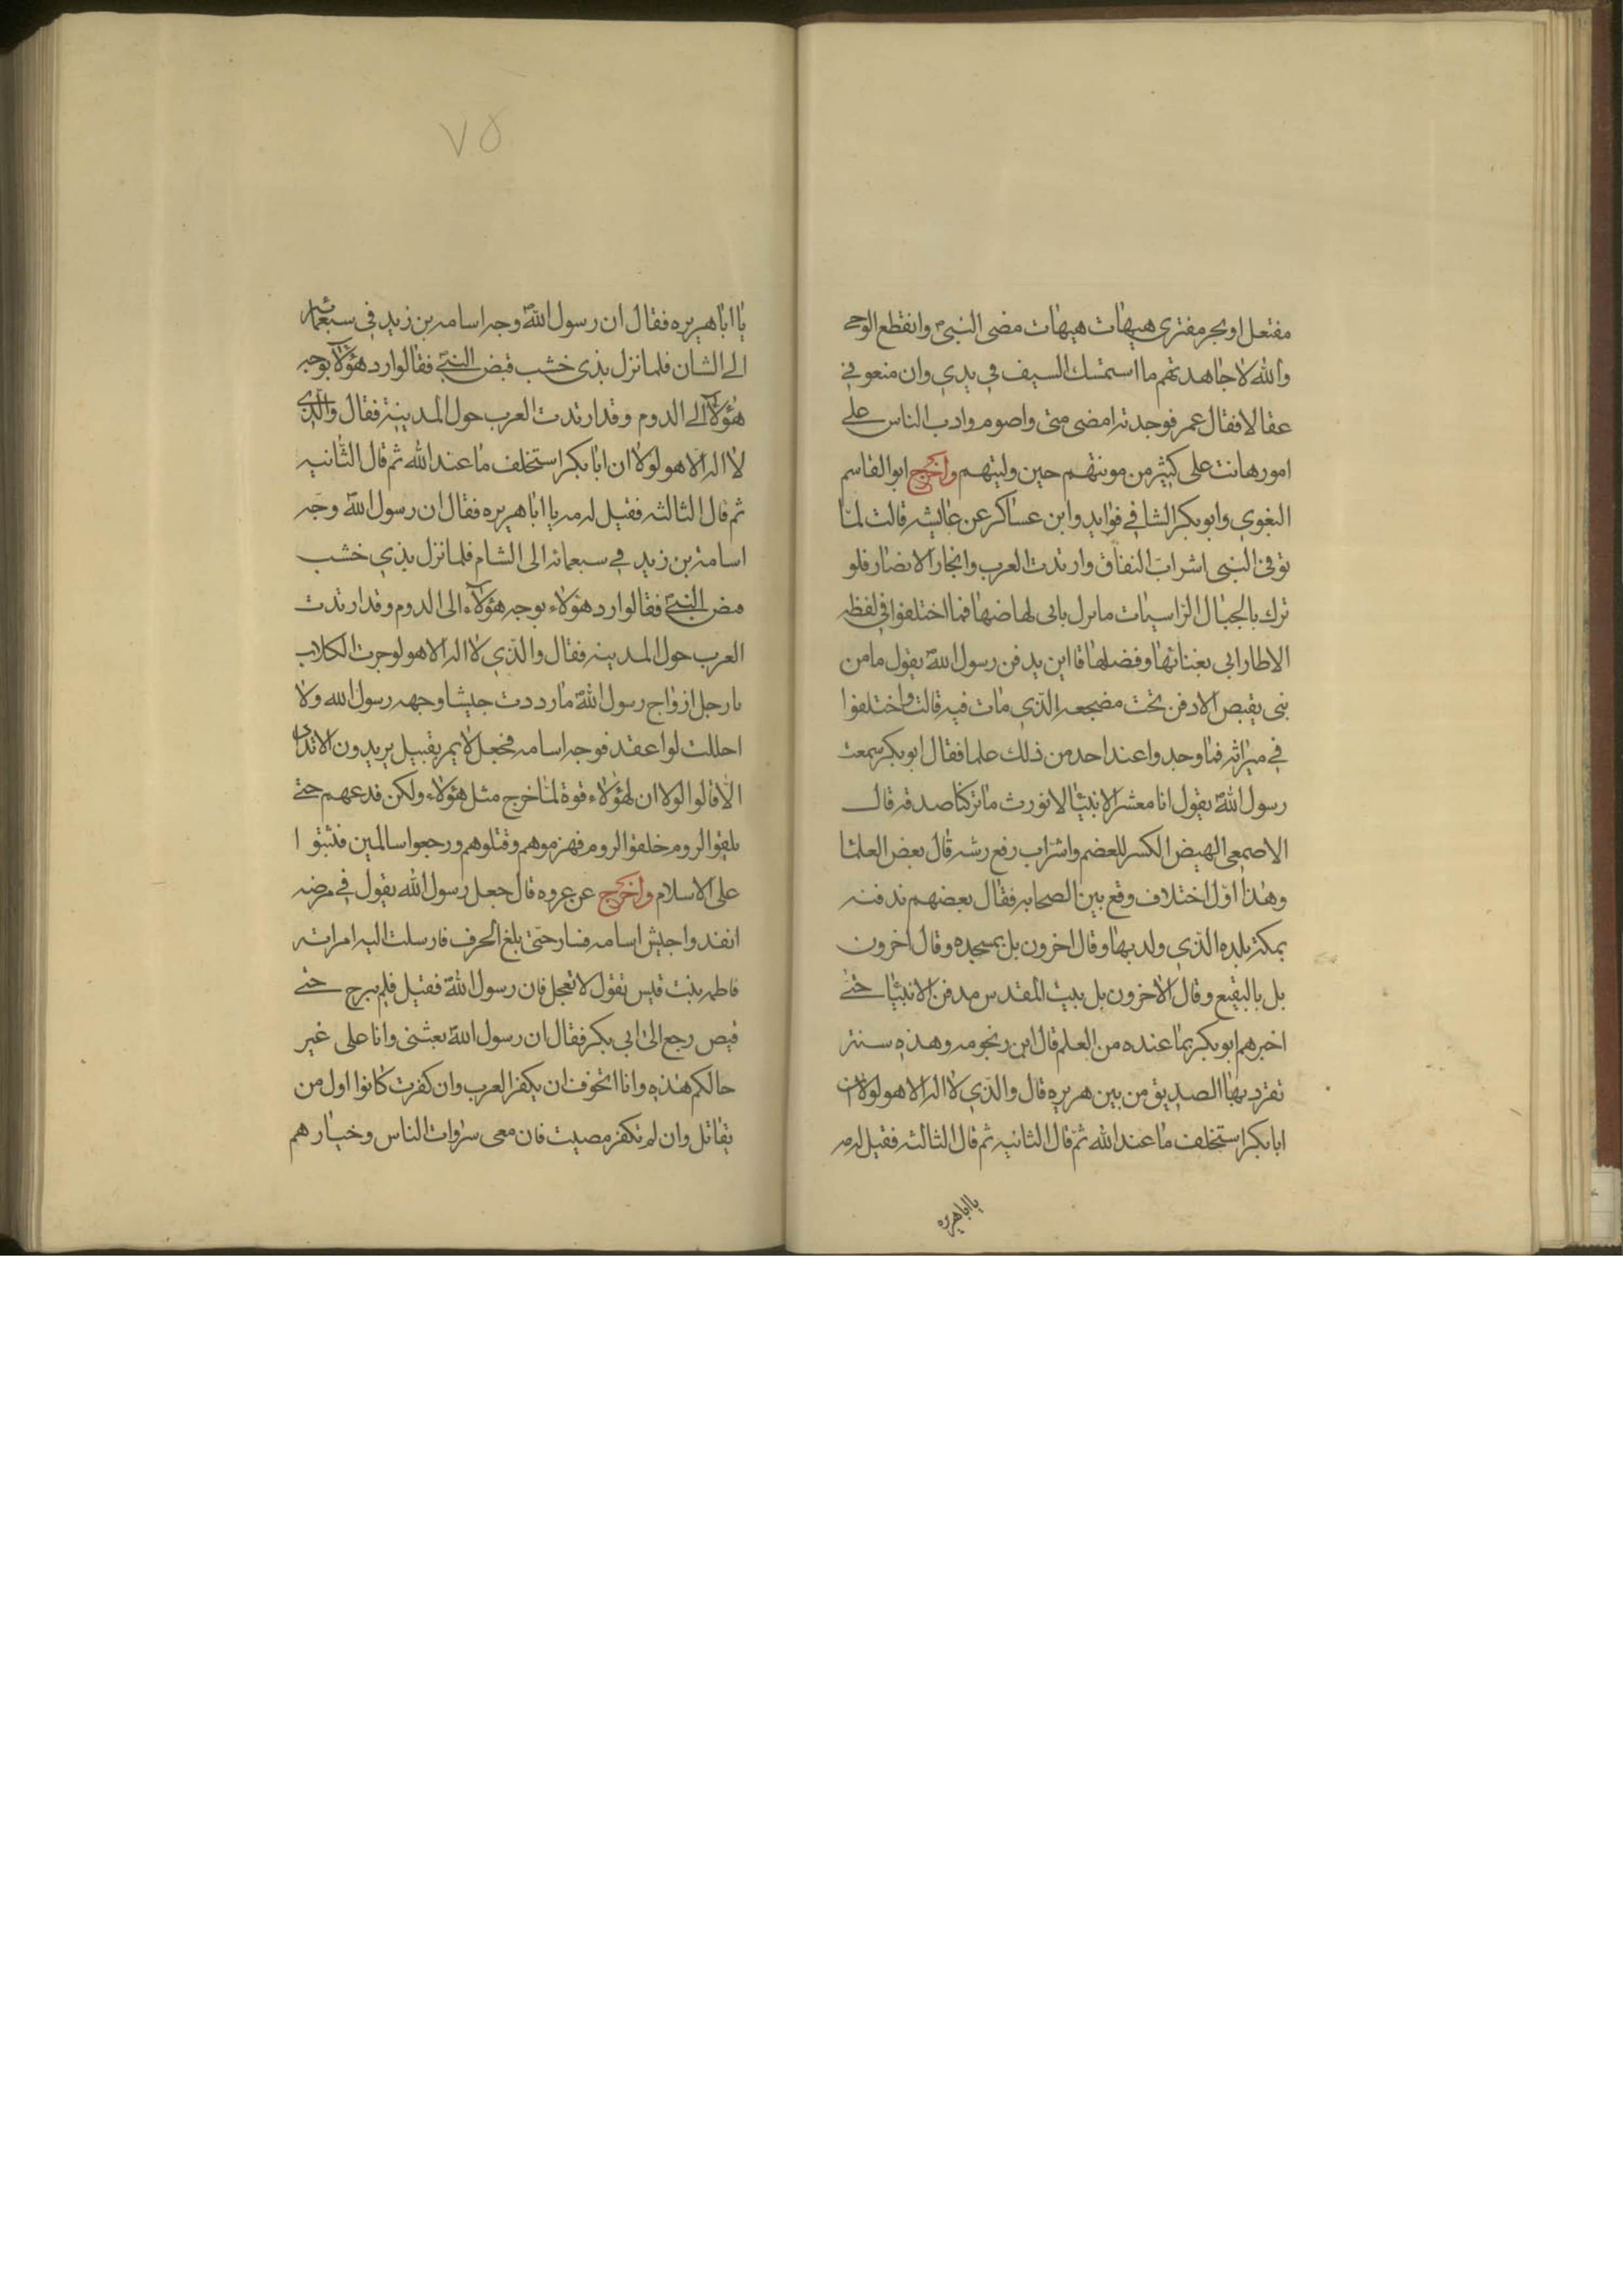 مفتعل او بحر مفترى هيهات هيهات مضى النبي وانقطع الوحى
والله لاجاهدتهم ما استمسك السيف في يدي وان منعوني
عقالا فقال عمر فوجدته امضى منى واصوم وادب الناس على
امور هانت على كثير من مونتهم حين وليتهم واخرج ابو القاسم
البغوي وابو بكر الشافي في فوايد وابن عساكر عن عايشه قالت لما
توفى النبى اشراب النفاق وارتدت العرب وانجاز الانصار فلو
نزل بالجبال الراسيات ما نزل بابى لهاضها فما اختلفوا في لفظه
الاطار ابى بغنائها وفضلها قا اين يدفن رسول الله يقول ما من
نبى يقبض الا دفن تحت مضجعه الذي مات فيه قالت واختلفوا
في ميراثه فما وجدوا عند احد من ذلك علما فقال ابو بكر سمعت
رسول الله يقول انا معشر الانبيا لا نورث ما تركنا صدقه قال
الاصمعى الهيض الكسر للعضم واشراب رفع رشه قال بعض العلما
وهذا اول اختلاف وقع بين الصحابه فقال بعضهم ندفنه
بمكة بلده الذي ولد بها وقال اخرون بل بمسجده وقال اخرون
بل بالبقيع وقال الاخرون بل ببيت المقدس مدفن الانبيا حتى
اخبرهم ابو بكر بما عنده من العلم قال ابن رنجومه وهذه سنة
تفرد بها الصديق من بين هريره قال والذي لا اله الا هو لولا ان
ابا بكر استخلف ما عند الله ثم قال الثانيه ثم قال الثالثه فقيل له مه
يا اباهريره
٧٥
يا اباهريره فقال ان رسول الله وجه اسامه بن زيد في سبعمائه
الى الشان فلما نزل بذى خشب قبض النبي فقالوا رد هؤلآ بوجه
هؤلآ الى الدوم وقد ارتدت العرب حول المدينة فقال والذى
لا اله الا هو لولا ان ابا بكر استخلف ما عند الله ثم قال الثانيه
ثم قال الثالثه فقيل له مه يا اباهريره فقال ان رسول الله وجه
اسامة بن زيد في سبعمائه الى الشام فلما نزل بذي خشب
مض النبي فقالوا رد هؤلاء بوجه هؤلآء الى الدوم وقد ارتدت
العرب حول المدينه فقال والذي لا اله الا هو لو جرت الكلاب
بارجل ازواج رسول الله ما رددت جيشا وجهه رسول الله ولا
احللت لوا عقد فوجه اسامه فجعل لا يمر بقبيل يريدون الاتداى
الا قالوا لولا ان لهؤلاء قوة لما خرج مثل هؤلاء ولكن فدعهم حتى
يلقوا الروم فلقوا الروم فهزموهم وقتلوهم ورجعوا سالمين فثبتوا
على الاسلام واخرج عن عروه قال جعل رسول الله يقول في مرضه
انفدوا جيش اسامه فسار حتى بلغ الحرف فارسلت اليه امراته
فاطمه بنت قيس تقول لا تعجل فان رسول الله فقيل فلم يبرح حتى
قبص رجع الى ابى بكر فقال ان رسول الله بعثنى وانا على غير
حالكم هذه وانا اتخوف ان يكفر العرب وان كفرت كانوا اول من
يقاتل وان لم تكفر مصيت فان معى سروات الناس وخيارهم